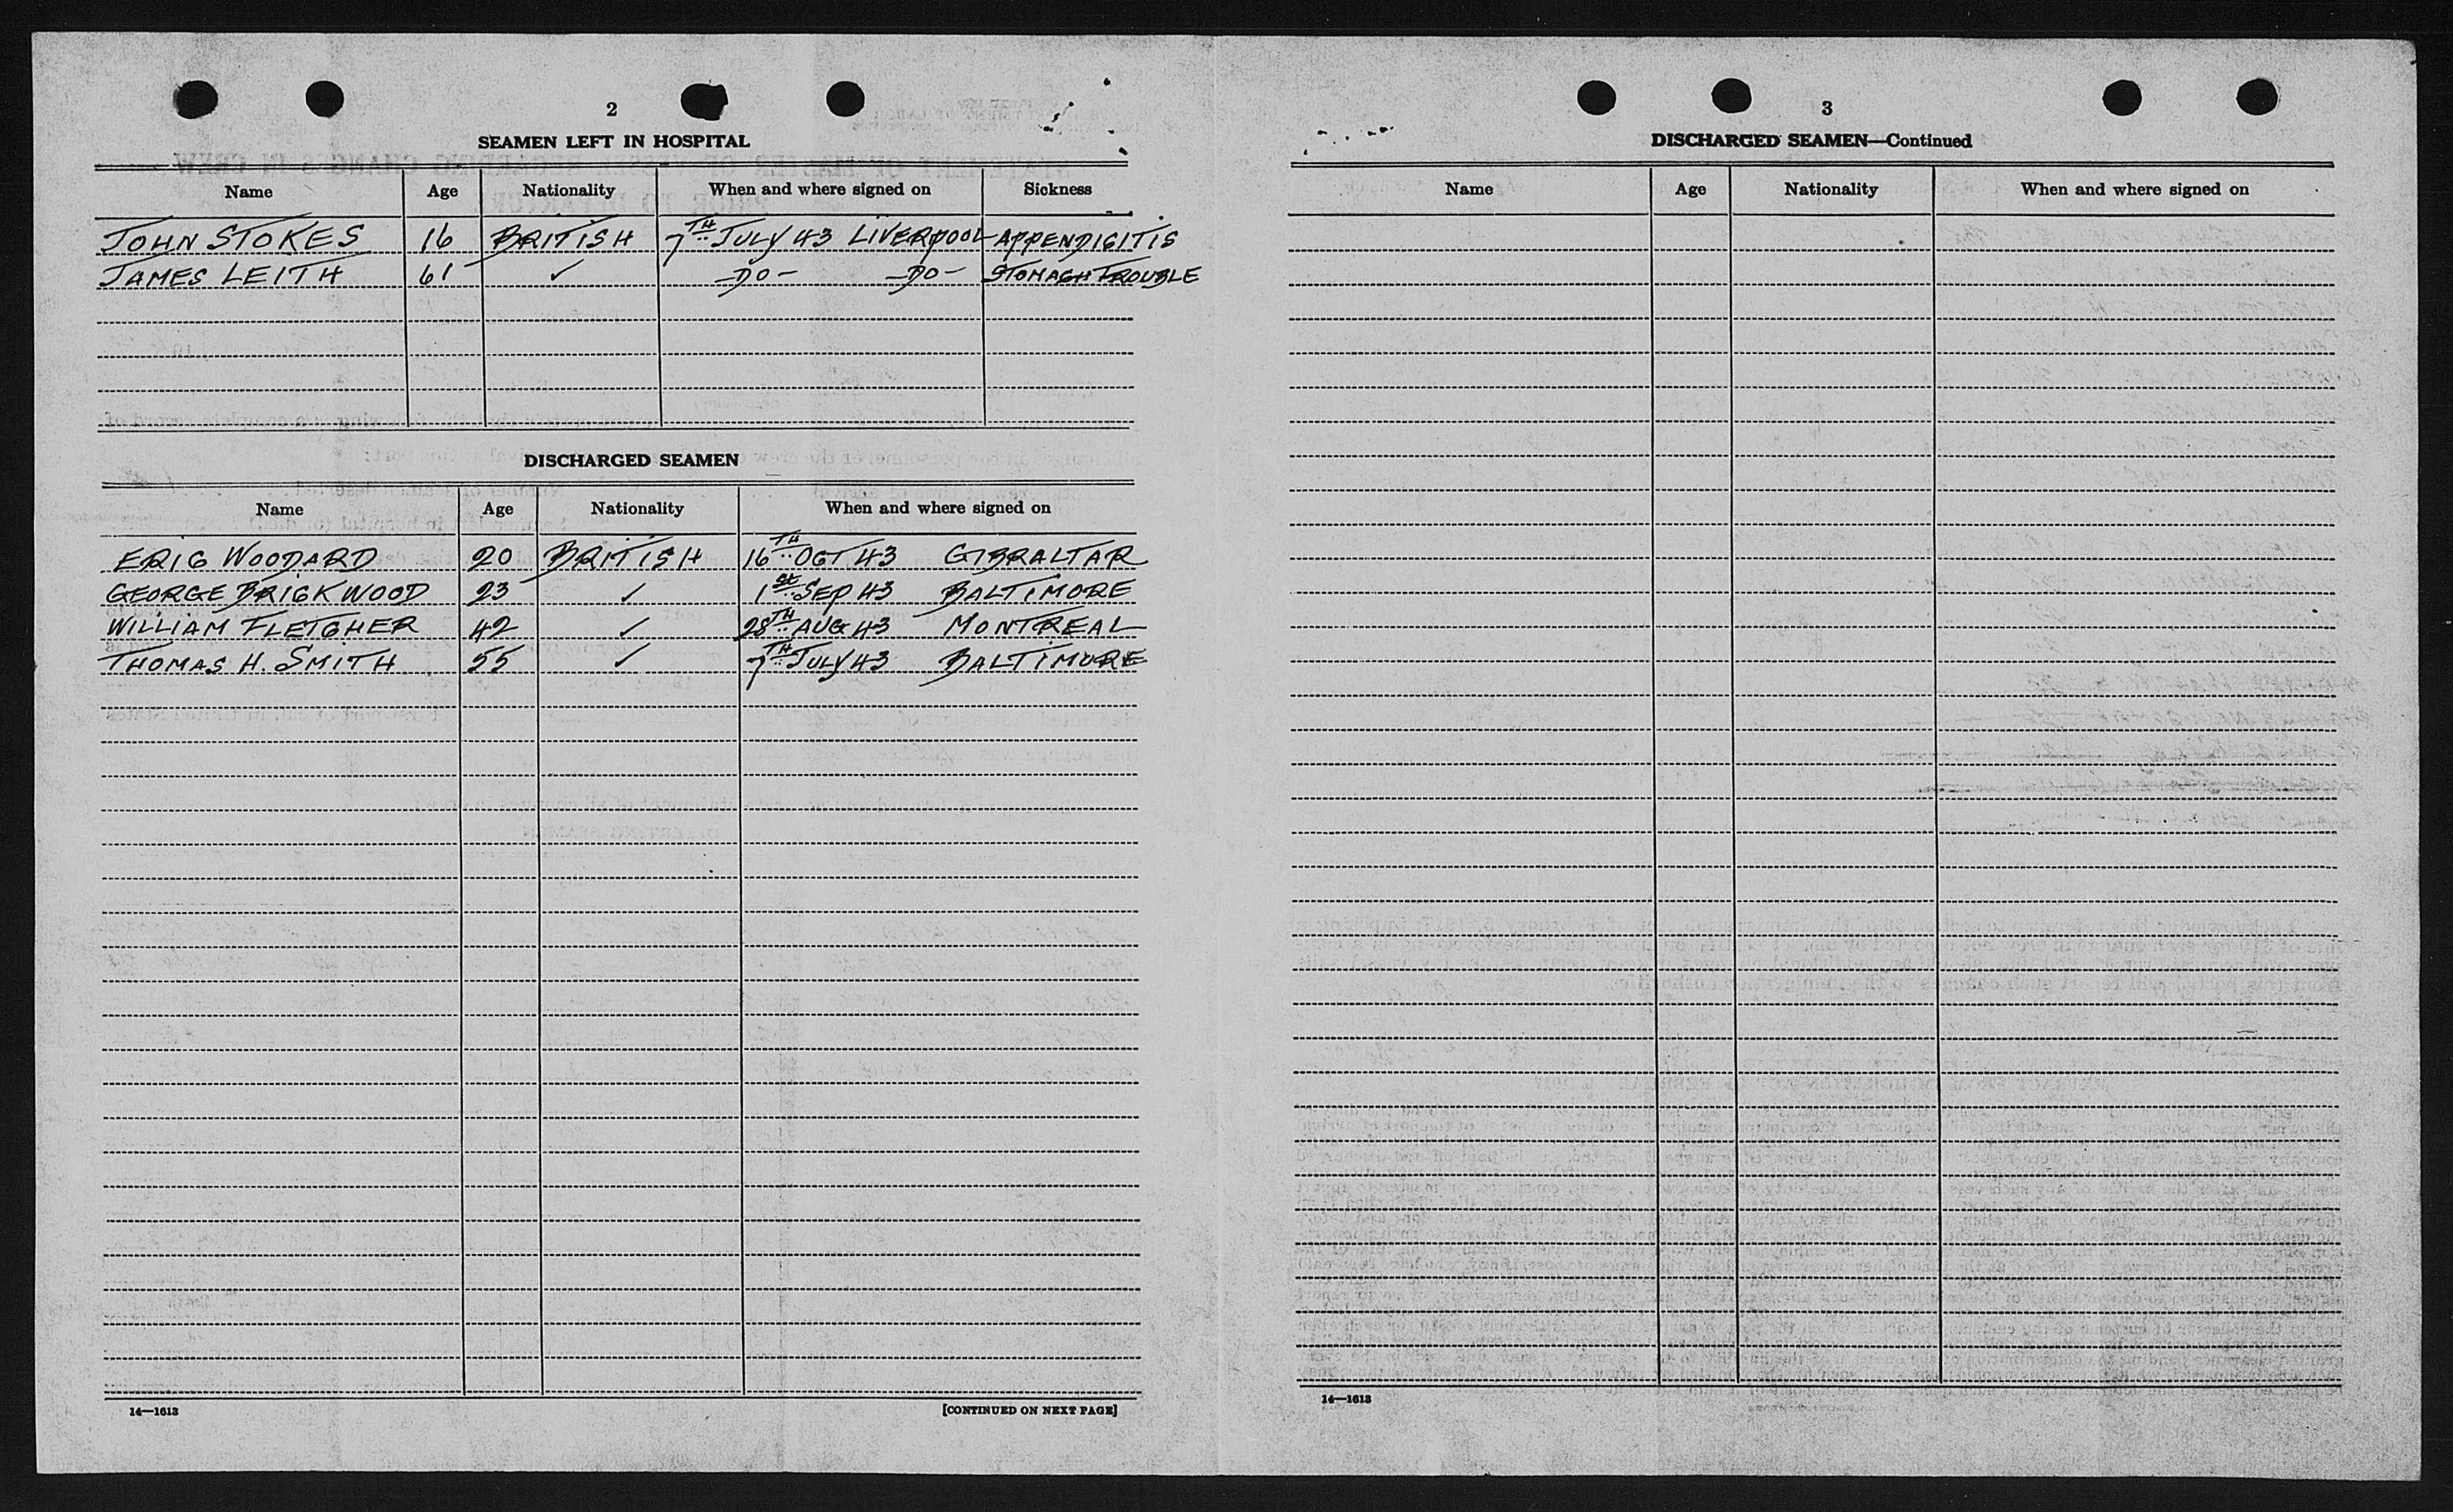 2
SEAMEN LEFT IN HOSPITAL
Name Age Nationality When and where signed on Sickness
JOHN STOKES 16 BRITISH 7TH JULY 43 LIVERPOOL APPENDICITIS
JAMES LEITH 61 ✓ -DO- -DO- STOMACH TROUBLE
DISCHARGED SEAMEN
Name Age Nationality When and where signed on
ERIC WOODARD 20 BRITISH 16TH OCT 43 GIBRALTAR
GEORGE BRICKWOOD 23 ✓ 1ST SEP 43 BALTIMORE
WILLIAM FLETCHER 42 ✓ 28TH AUG 43 MONTREAL
THOMAS H. SMITH 55 ✓ 7TH JULY 43 BALTIMORE
14—1613
[CONTINUED ON NEXT PAGE]
3
DISCHARGED SEAMEN—Continued
Name Age Nationality When and where signed on
14—1613